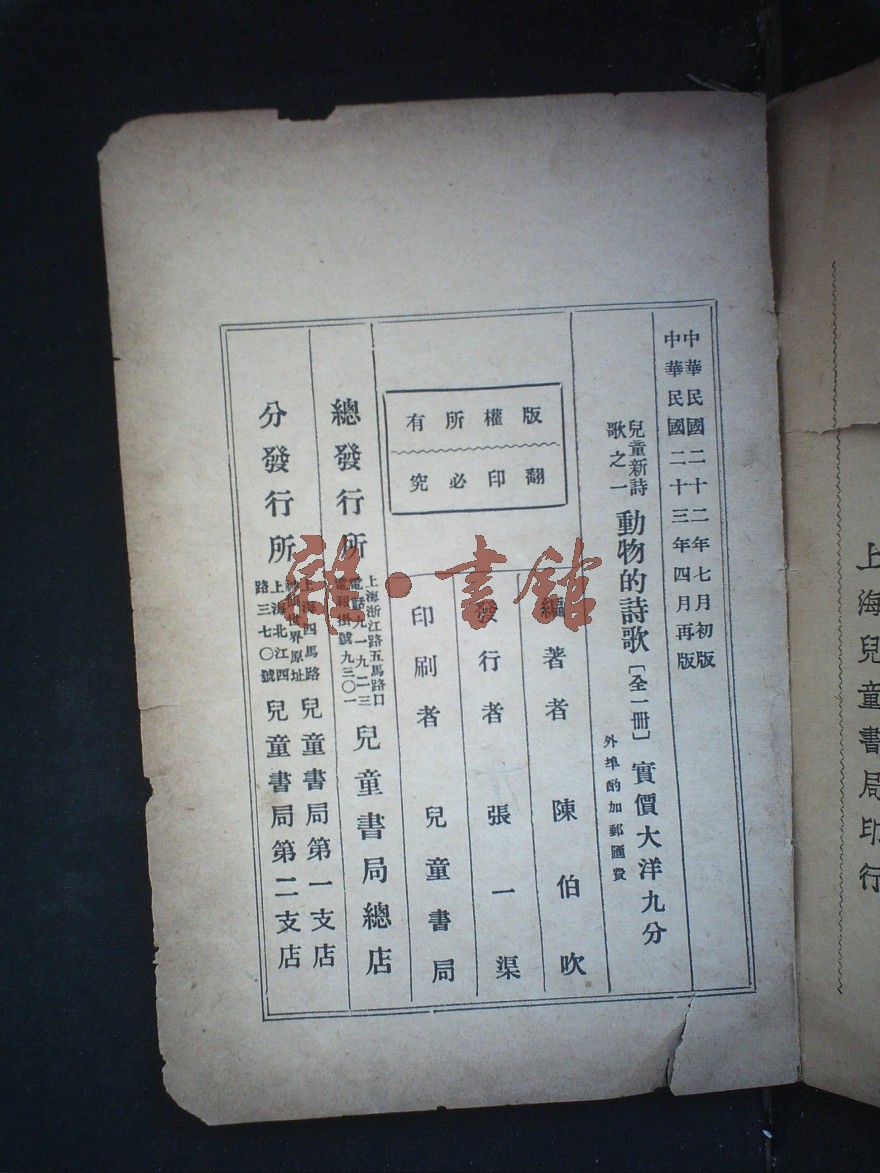 中華民國二十二年七月初版
中華民國二十三年四月再版
兒童新詩
歌之一
動物的詩歌[全一册]實價大洋九分
外埠酌加郵匯費
編著者 陳伯吹
發行者 張一渠
印刷者 兒童書局
版權所有
翻印必究
總發行所
上海浙江路五馬路口
電話九一九二三
電報掛號九三〇一
兒童書局總店
分發行所
上海四馬路
世界原址
兒童書局第一支店
上海北江四
路三七〇號
兒童書局第二支店
上海兒童書局印行
雜·書館